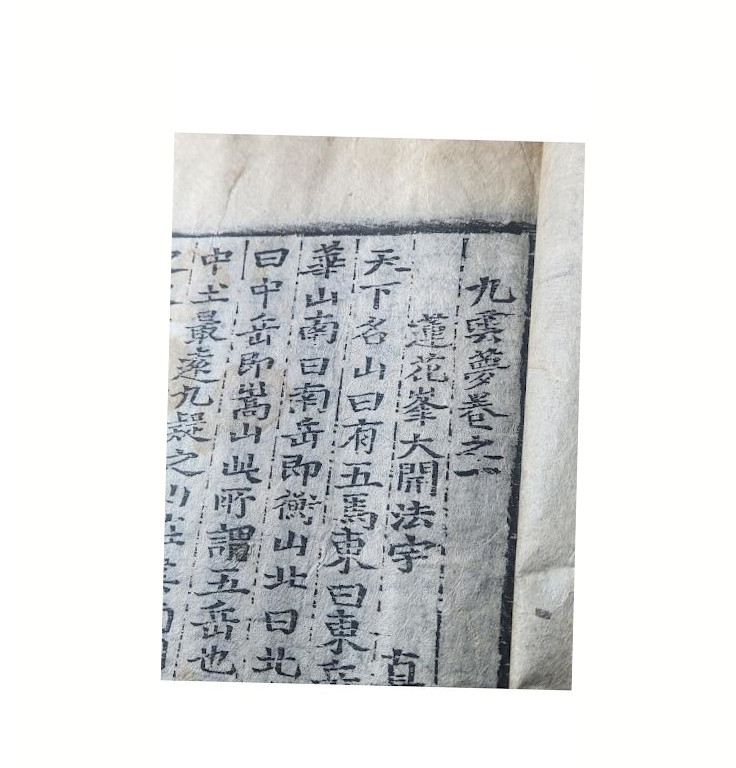 九雲夢卷之一
蓮花峯大開法宇
天下名山曰有五焉東曰東岳
華山南曰南岳即衡山北曰北
曰中岳即嵩山此所謂五岳也
中土最遠九疑之